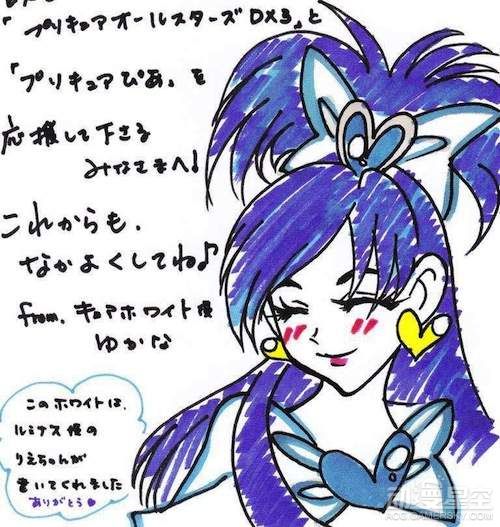 「プリキュアオールスターズDX3」と
「プリキュアぴあ」を
応援して下さる
みなさまへ♪
これからも、
なかよくしてね♪
from. キュアホワイト役
ゆかな
このホワイトは、
ルミナス役の
りえちゃんが
書いてくれました
ありがとう
动漫星空
ACG.GAMERSKY.COM